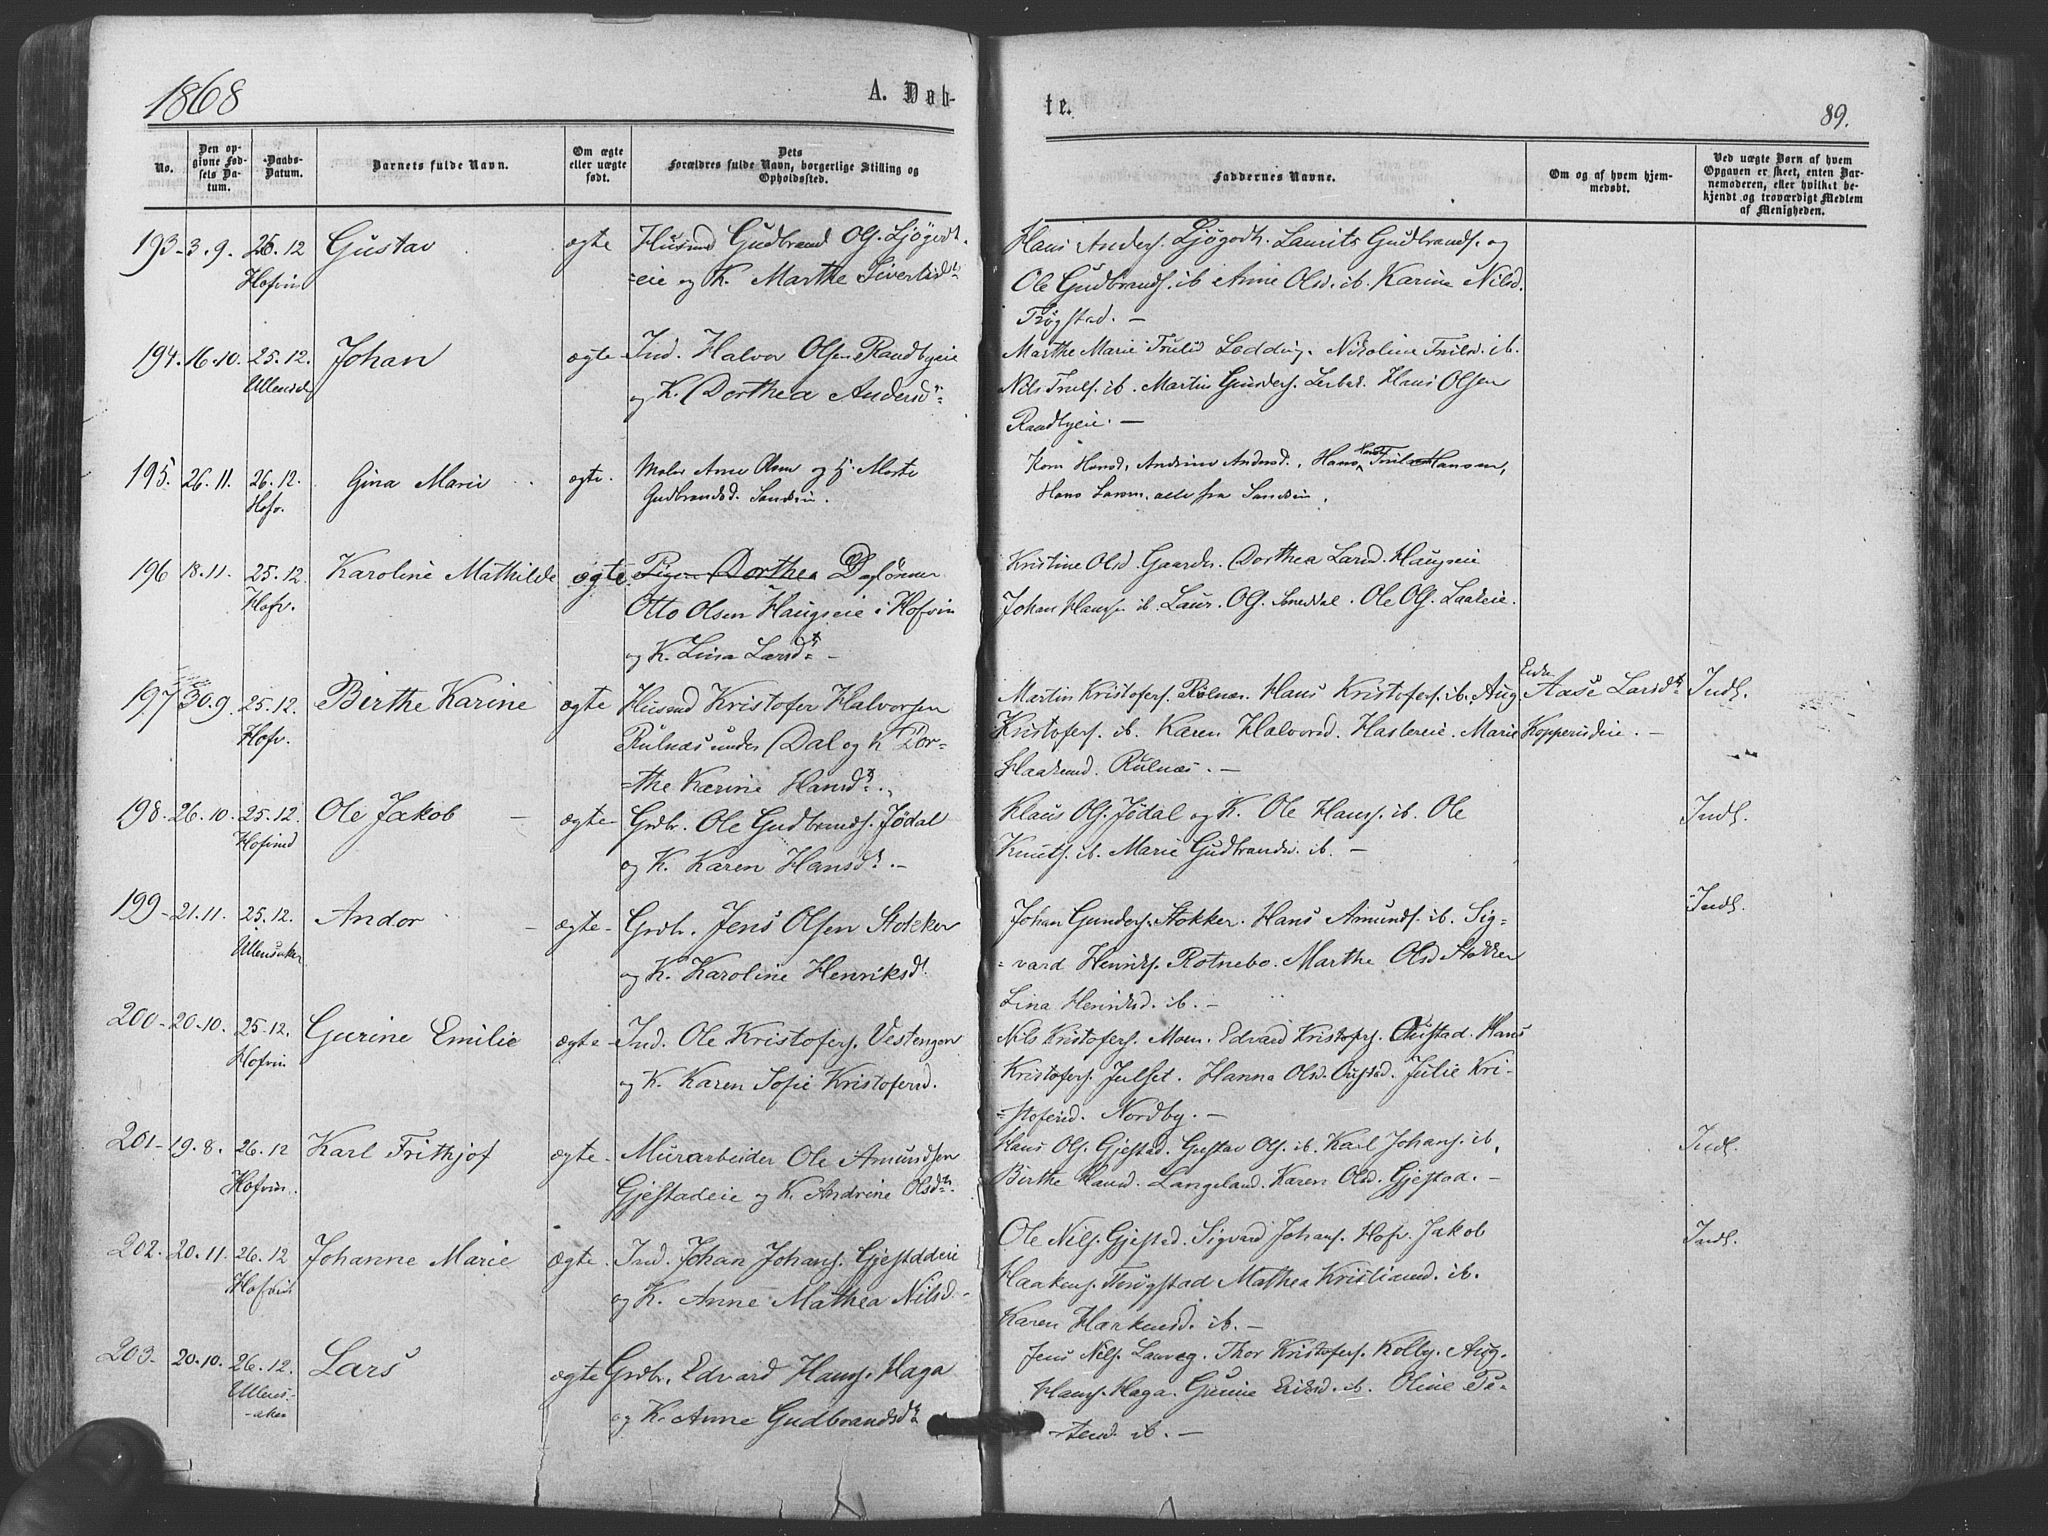 1868
A. Døb-
No.
Den op-
givne Fød-
sels Da-
tum.
Daabs-
Datum.
Barnets fulde Navn.
Om ægte
eller uægte
født.
Dets
Forældres fulde Navn, borgerlige Stilling og
Opholdssted.
193 3.9. 26.12 Gustav ægte Husmd Gudbrand Ols. Ljøgodt-
Hofvin =eie og K. Marthe Sivertsdt
194. 16.10. 25.12. Johan ægte Ind. Halvor Olsen Raadbyeie
Ullensak og K. Dorthea Andersdt
195. 26.11. 26.12. Gina Marie ægte. Maler Arne Olsen og K. Marte
Hofv. Gudbrandsd.
196 18.11. 25.12. Karoline Mathilde ægte Pigen Dorthea Daglønner
Hofv. Otto Olsen Haugseie i Hofvin
og K. Lina Larsdt –
197 30.9. 25.12. Birthe Karine ægte Husmd Kristofer Halvorsen
Hofv. Rulnæs under Dal og K Dor-
=the Karine Hansdt.
198. 26.10. 25.12. Ole Jakob – ægte- Grdbr. Ole Gudbrands. Jødal
Hofvind og K. Karen Hansdt. –
199 21.11. 25.12. Andor – ægte- Grdbr. Jens Olsen Stokker
Ullensaker og K. Karoline Henriksdt
200 20.10. 25.12. Gurine Emilie ægte- Ind. Ole Kristofers. Vestengen
Hofvin og K. Karen Sofie Kristofersd.
201 19.8. 26.12 Karl Frithjof ægte- Murarbeider Ole Amundsen
Hofvin. Gjestadeie og K. Andrine Olsdt.
202. 20.11. 26.12 Johanne Marie ægte. Ind. Johan Johans. Gjestadeie
Hofvin og K. Anne Mathea Nilsd. –
203. 20.10. 26.12. Lars ægte Grdbr. Edvard Hans. Haga
Ullens-
-aker og K. Anne Gudbrandsdt
te.
89.
Faddernes Navne.
Om og af hvem hjem-
medøbt.
Ved uægte Børn af hvem
Opgaven er skeet, enten Bar-
nemoderen, eller hvilket be-
kjendt og troværdigt Medlem
af Menigheden.
Hans Anders. Ljøgodt. Laurits Gudbrands. og
Ole Gudbrands. ib Anne Olsd. ib. Karine Nilsd.
Trøgstad. –
Marthe Marie Trulsd Nikoline Trulsd. ib.
Nils Truls. ib. Martin Gunders. Hans Olsen
Raadbyeie. –
Karn Hansd, Andrine Andersd., Hans Hansen,
Hans Larsen, alle fra
Kristine Olsd Gaarder. Dorthea Larsd. Haugseie
Johan Hansen ib. Laur. Ols. Ole Ols. Laakeie.
Martin Kristofers. Rulnæs. Hans Kristofers. ib. Aug.
Kristofers. ib. Karen Halvorsd. Haslereie. Marie
Haakensd. Rulnæs. –
Enke Aase Larsdt
Kopperudeie. –
Indl.
Klaus Ols. Jødal og K. Ole Hans. ib. Ole
Knuts. ib. Marie Gudbrandsd. ib. –
Indl.
Johan Gunders. Stokker. Hans Amunds. ib. Sig-
=vard Henriks. Rotnebo. Marthe Olsd Stokker
Lina Henriksd. ib. –
Indl.
Nils Kristofers. Moen. Edvard Kristofers. Hans
Kristofers. Julset. Hanna Olsd. Julie Kri-
=stofersd. Nordby. –
Hans Ols. Gjestad. Gustav Ols. ib. Karl Johans. ib.
Birthe Hansd. Langeland. Karen Olsd. Gjestad. –
Indl.
Ole Nils. Gjestad. Sigvard Johans. Hofv. Jakob
Haakens. Trøgstad Mathea Kristiansd. ib.
Karen Haakensd. ib. –
Indl.
Jens Nils. Lauveg. Thor Kristofers. Kolby. Aug.
Hans. Haga. Gunine Eriksd. ib. Oline Pe-
-tersd. ib. –